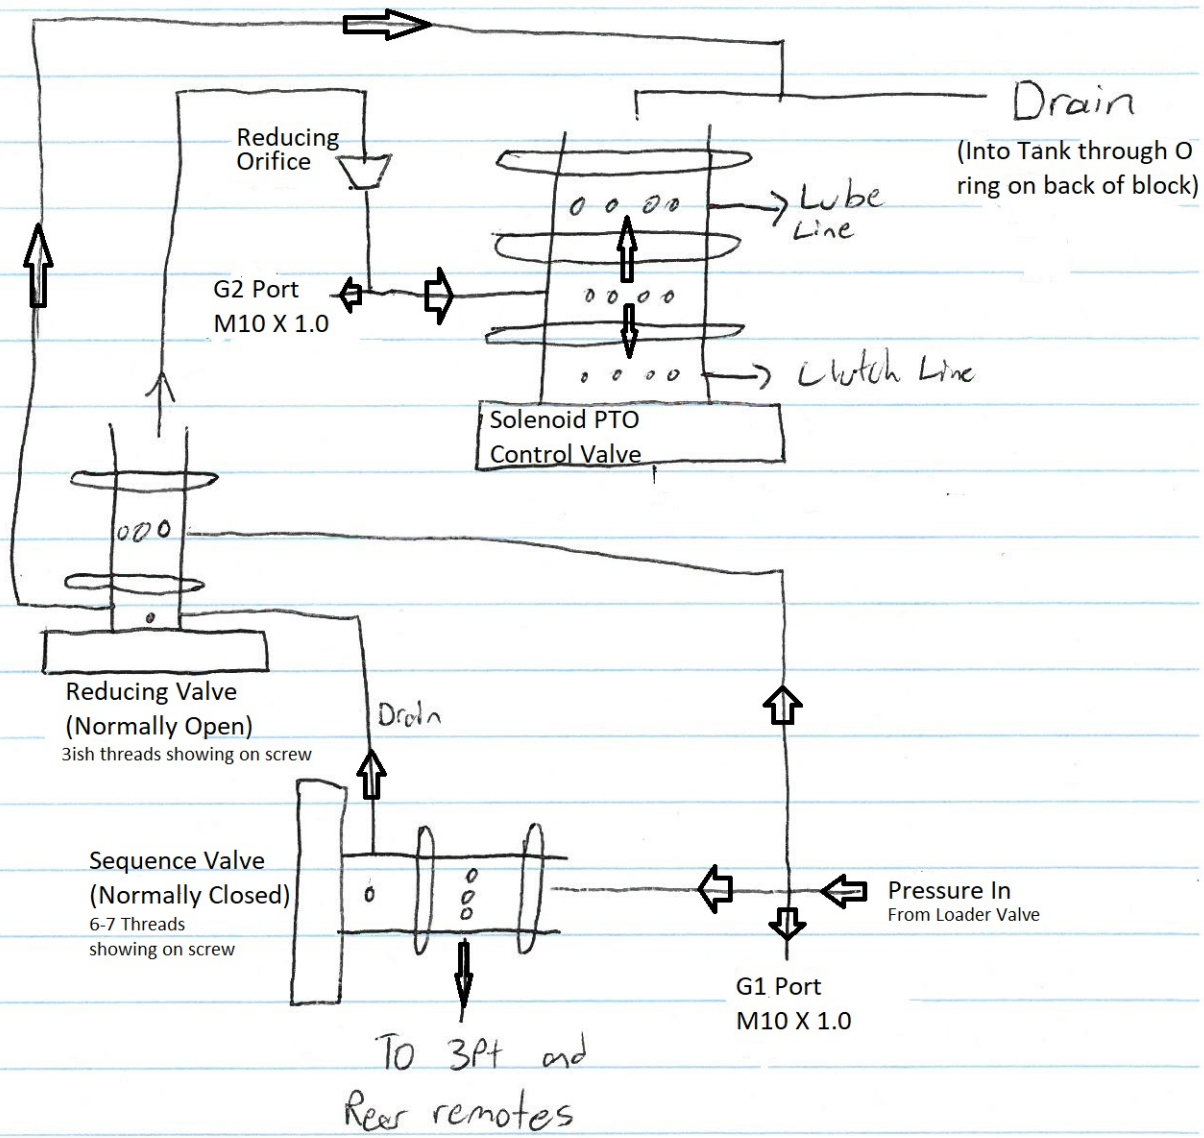 Drain
(Into Tank through O
ring on back of block)
Reducing
Orifice
Lube
Line
G2 Port
M10 X 1.0
Clutch Line
Solenoid PTO
Control Valve
Reducing Valve
(Normally Open)
3ish threads showing on screw
Drain
Sequence Valve
(Normally Closed)
6-7 Threads
showing on screw
Pressure In
From Loader Valve
G1 Port
M10 X 1.0
To 3Pt and
Rear remotes